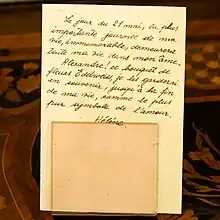 Le jour du 21 mai, la plus
importante journée de ma
vie, immémorable, demeurera
toute ma vie dans mon âme.
Alexandre! et bouquet de
fleurs Edelweiss, je les garderai
en souvenir, jusqu'à la fin
de ma vie, comme le plus
pur symbole de l'amour.
Hélène